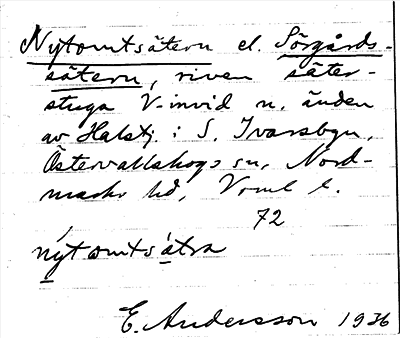 Nytomtsätern el. Sörgårds-
sätern, riven säter-
stuga V-invid n. änden
av Halstj. i S. Ivarsbyn,
Östervallskogs sn, Nord-
marks hd, Vrml l.
72
nýtomtsätra
E. Andersson 1936